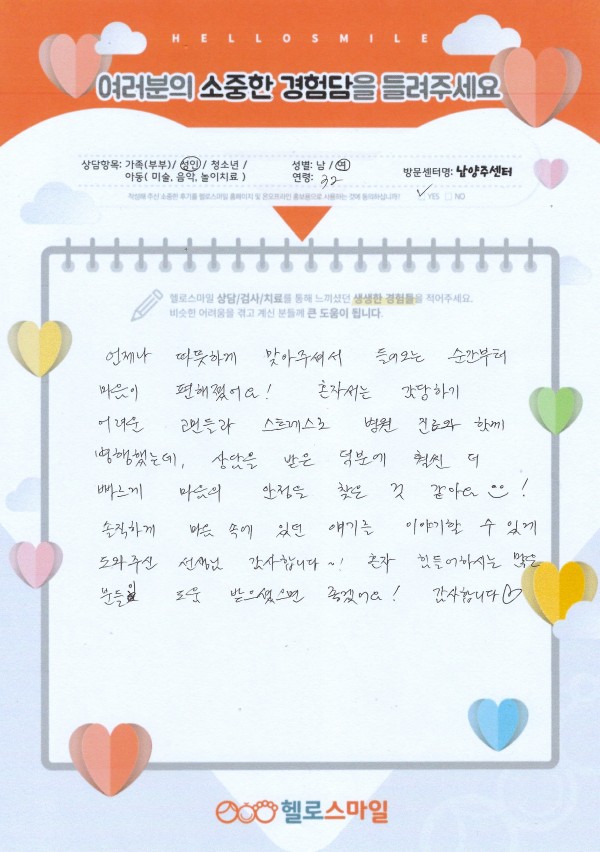 HELLOSMILE
여러분의 소중한 경험담을 들려주세요
상담항목: 가족(부부)/ 성인 / 청소년 /
아동( 미술, 음악, 놀이치료 )
성별: 남 / 여
연령: 32
방문센터명: 남양주센터
작성해 주신 소중한 후기를 헬로스마일 홈페이지 및 온오프라인 홍보용으로 사용하는 것에 동의하십니까? ✓ YES □ NO
헬로스마일 상담/검사/치료를 통해 느끼셨던 생생한 경험들을 적어주세요.
비슷한 어려움을 겪고 계신 분들께 큰 도움이 됩니다.
언제나 따뜻하게 맞아주셔서 들어오는 순간부터
마음이 편해졌어요! 혼자서는 감당하기
어려운 고민들과 스트레스로 병원 진료와 함께
병행했는데, 상담을 받은 덕분에 훨씬 더
빠르게 마음의 안정을 찾은 것 같아요 !
솔직하게 마음 속에 있던 얘기를 이야기할 수 있게
도와주신 선생님 감사합니다~! 혼자 힘들어하시는 많은
분들이 도움 받으셨으면 좋겠어요! 감사합니다♡
헬로스마일